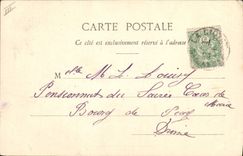 CARTE POSTALE
Ce côté est exclusivement réservé à l'adresse
M L. Louisy
Pensionnat du Sacré Cœur de Marie
Bourg de Péage
Drôme